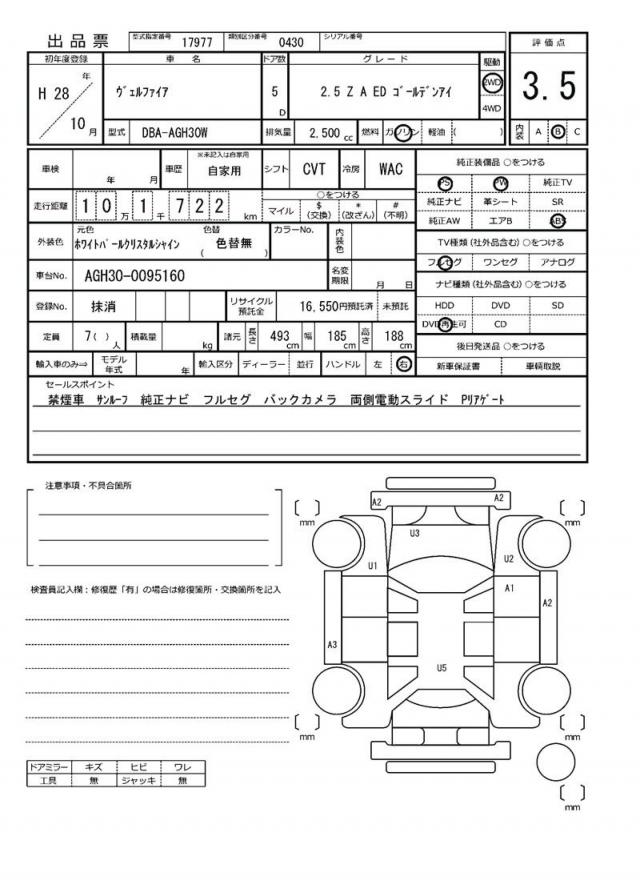 出品票 型式指定番号 17977 類別区分番号 0430 シリアル番号
初年度登録 車名 ドア数 グレード 駆動 評価点
H 28 年 10 月 ヴェルファイア 5 D 2.5 Z A ED ゴールデンアイ 2WD 4WD 3.5
型式 DBA-AGH30W 排気量 2,500 cc 燃料 ガソリン 軽油 ( ) 内装 A B C
車検 年 月 車歴 ※未記入は自家用 自家用 シフト CVT 冷房 WAC
走行距離 1 0 万 1 千 7 2 2 km ○をつける マイル $ (交換) * (改ざん) # (不明)
外装色 元色 ホワイトパールクリスタルシャイン 色替 ( 色替無 ) カラーNo. 内装色
車台No. AGH30-0095160 名変期限 月 日
登録No. 抹消 リサイクル預託金 16,550円預託済 未預託
定員 7( ) 人 積載量 kg 諸元 長さ 493 cm 幅 185 cm 高さ 188 cm
輸入車のみ⇒ モデル年式 年 輸入区分 ディーラー 並行 ハンドル 左 右
純正装備品 ○をつける
PS PW 純正TV
純正ナビ 革シート SR
純正AW エアB ABS
TV種類(社外品含む)○をつける
フルセグ ワンセグ アナログ
ナビ種類(社外品含む)○をつける
HDD DVD SD
DVD再生可 CD
後日発送品 ○をつける
新車保証書 車輌取説
セールスポイント
禁煙車 サンルーフ 純正ナビ フルセグ バックカメラ 両側電動スライド Pリアゲート
注意事項・不具合箇所
検査員記入欄:修復歴「有」の場合は修復箇所・交換箇所を記入
A2 A2
mm mm
U3
U1 U2
A1 A2
A3
U5
mm mm
mm
ドアミラー キズ ヒビ ワレ
工具 無 ジャッキ 無